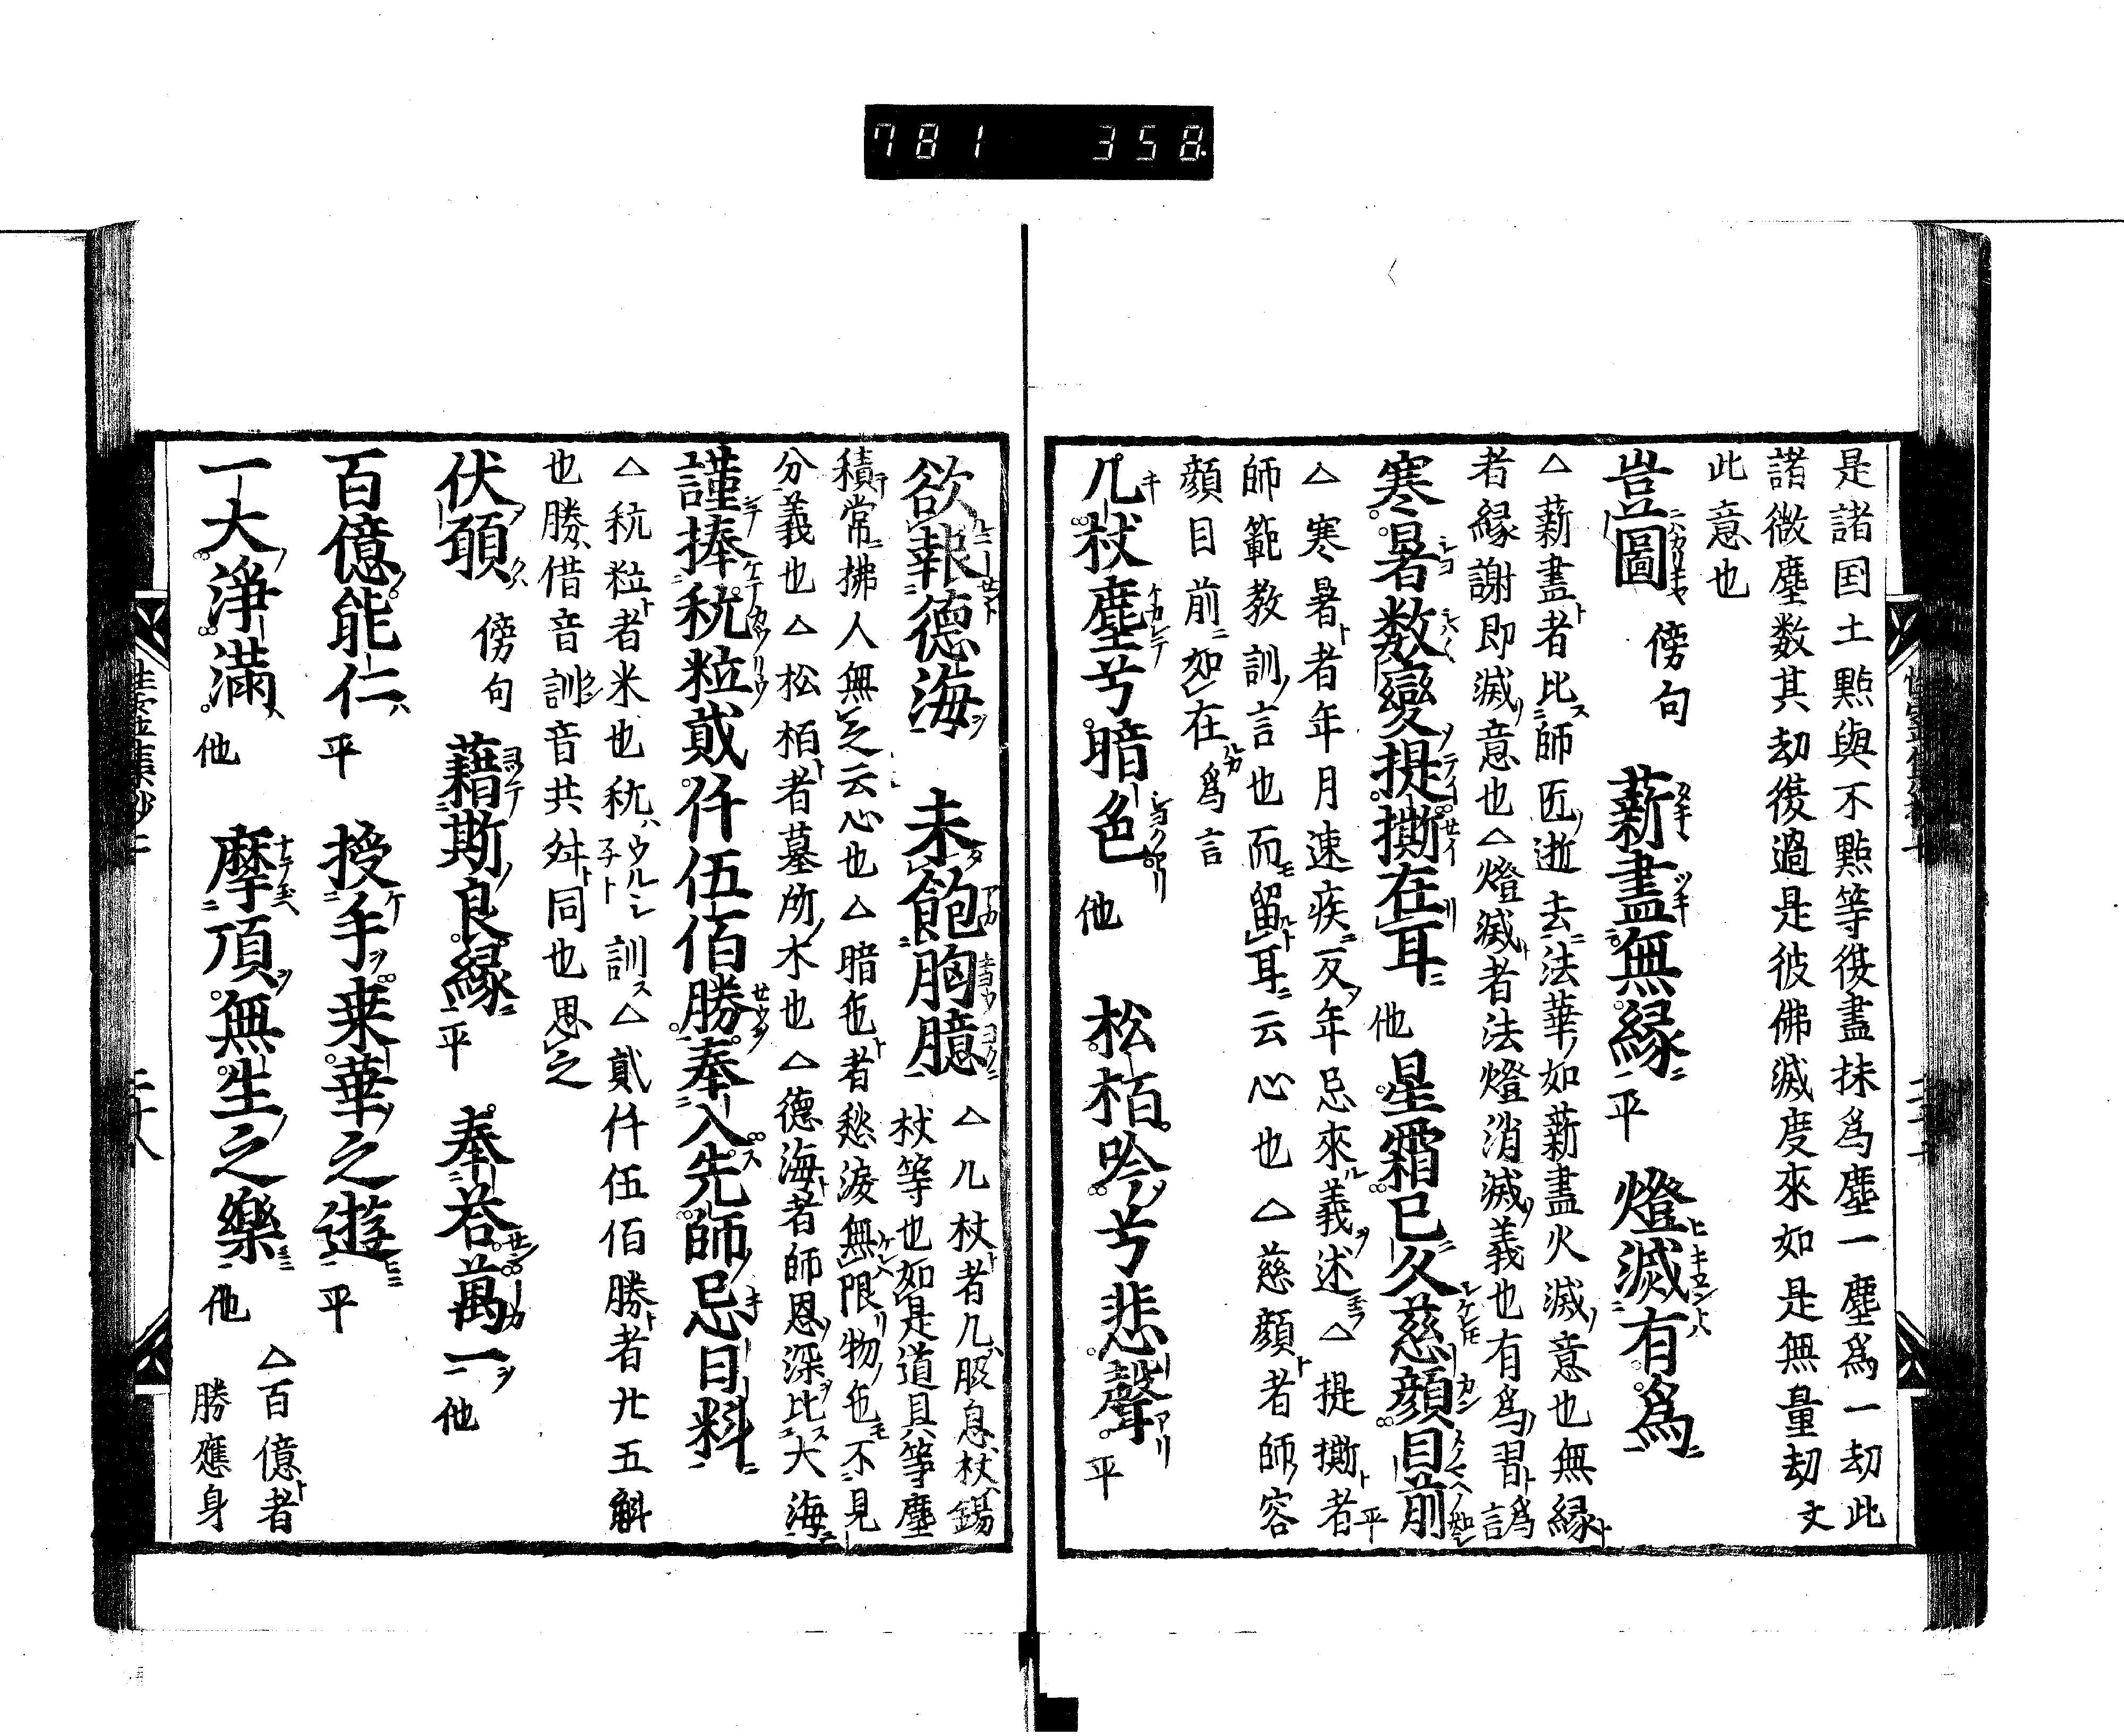 781 358
是諸国土點與不點等後盡抹爲塵一塵爲一劫此
諸微塵数其劫後過是彼佛滅度來如是無量劫文
此意也
豈圖 傍句 薪盡無縁 平 燈滅有爲
△薪盡者比師匠逝去法華如薪盡火滅意也無縁
者縁謝即滅意也△燈滅者法燈消滅義也有爲習爲言
寒暑数變提撕在耳 他 星霜已久慈顔目前 平
△寒暑者年月速疾反年忌來義述△提撕者
師範教訓言也而留耳云心也△慈顔者師容
顔目前如在爲言
几杖塵兮暗色 他 松栢吟兮悲聲 平
欲報德海 未飽胸臆 △几杖者几服息杖錫
杖等也如是道具等塵
積常拂人無之云心也△暗色者愁淚無限物色不見
分義也△松栢者墓所木也△德海者師恩深比大海
謹捧秔粒貮仟伍佰勝奉入先師忌日料
△秔粒者米也秔ハウルシ子ト訓ス△貮仟伍佰勝者廿五斛
也勝借音訓音共舛同也思之
伏願 傍句 藉斯良縁 平 奉荅萬一 他
百億能仁 平 授手乗華之遊 平
一大淨滿 他 摩頂無生之樂 他 △百億者
勝應身